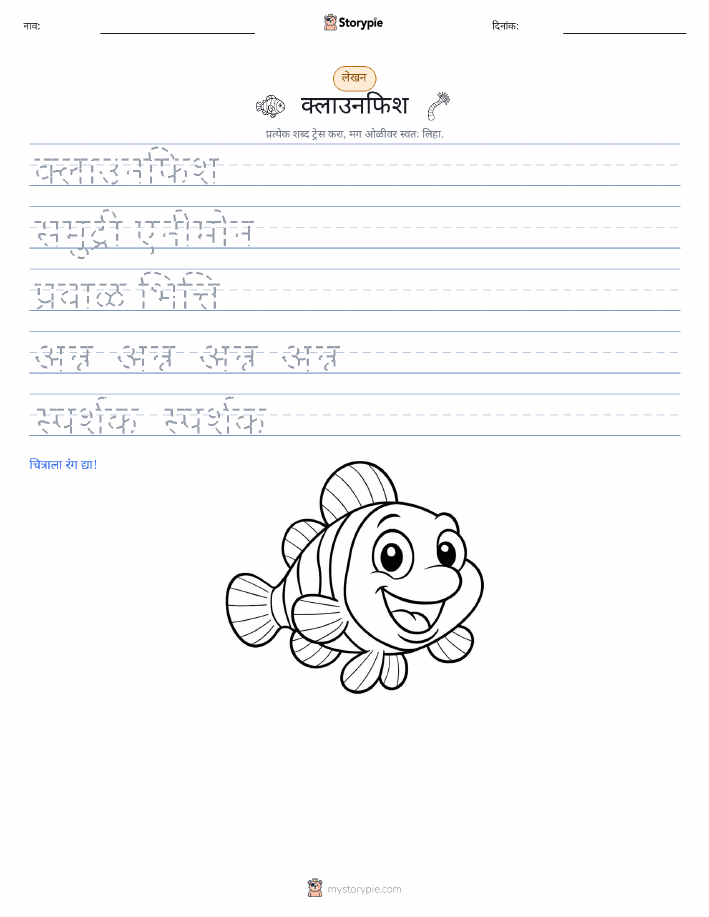 नाव:
Storypie
दिनांक:
लेखन
क्लाउनफिश
प्रत्येक शब्द ट्रेस करा, मग ओळीवर स्वतः लिहा.
क्लाउनफिश
समुद्री एनीमोन
प्रवाळ भित्ति
अन्न अन्न अन्न अन्न
स्पर्शक स्पर्शक
चित्राला रंग द्या!
mystorypie.com